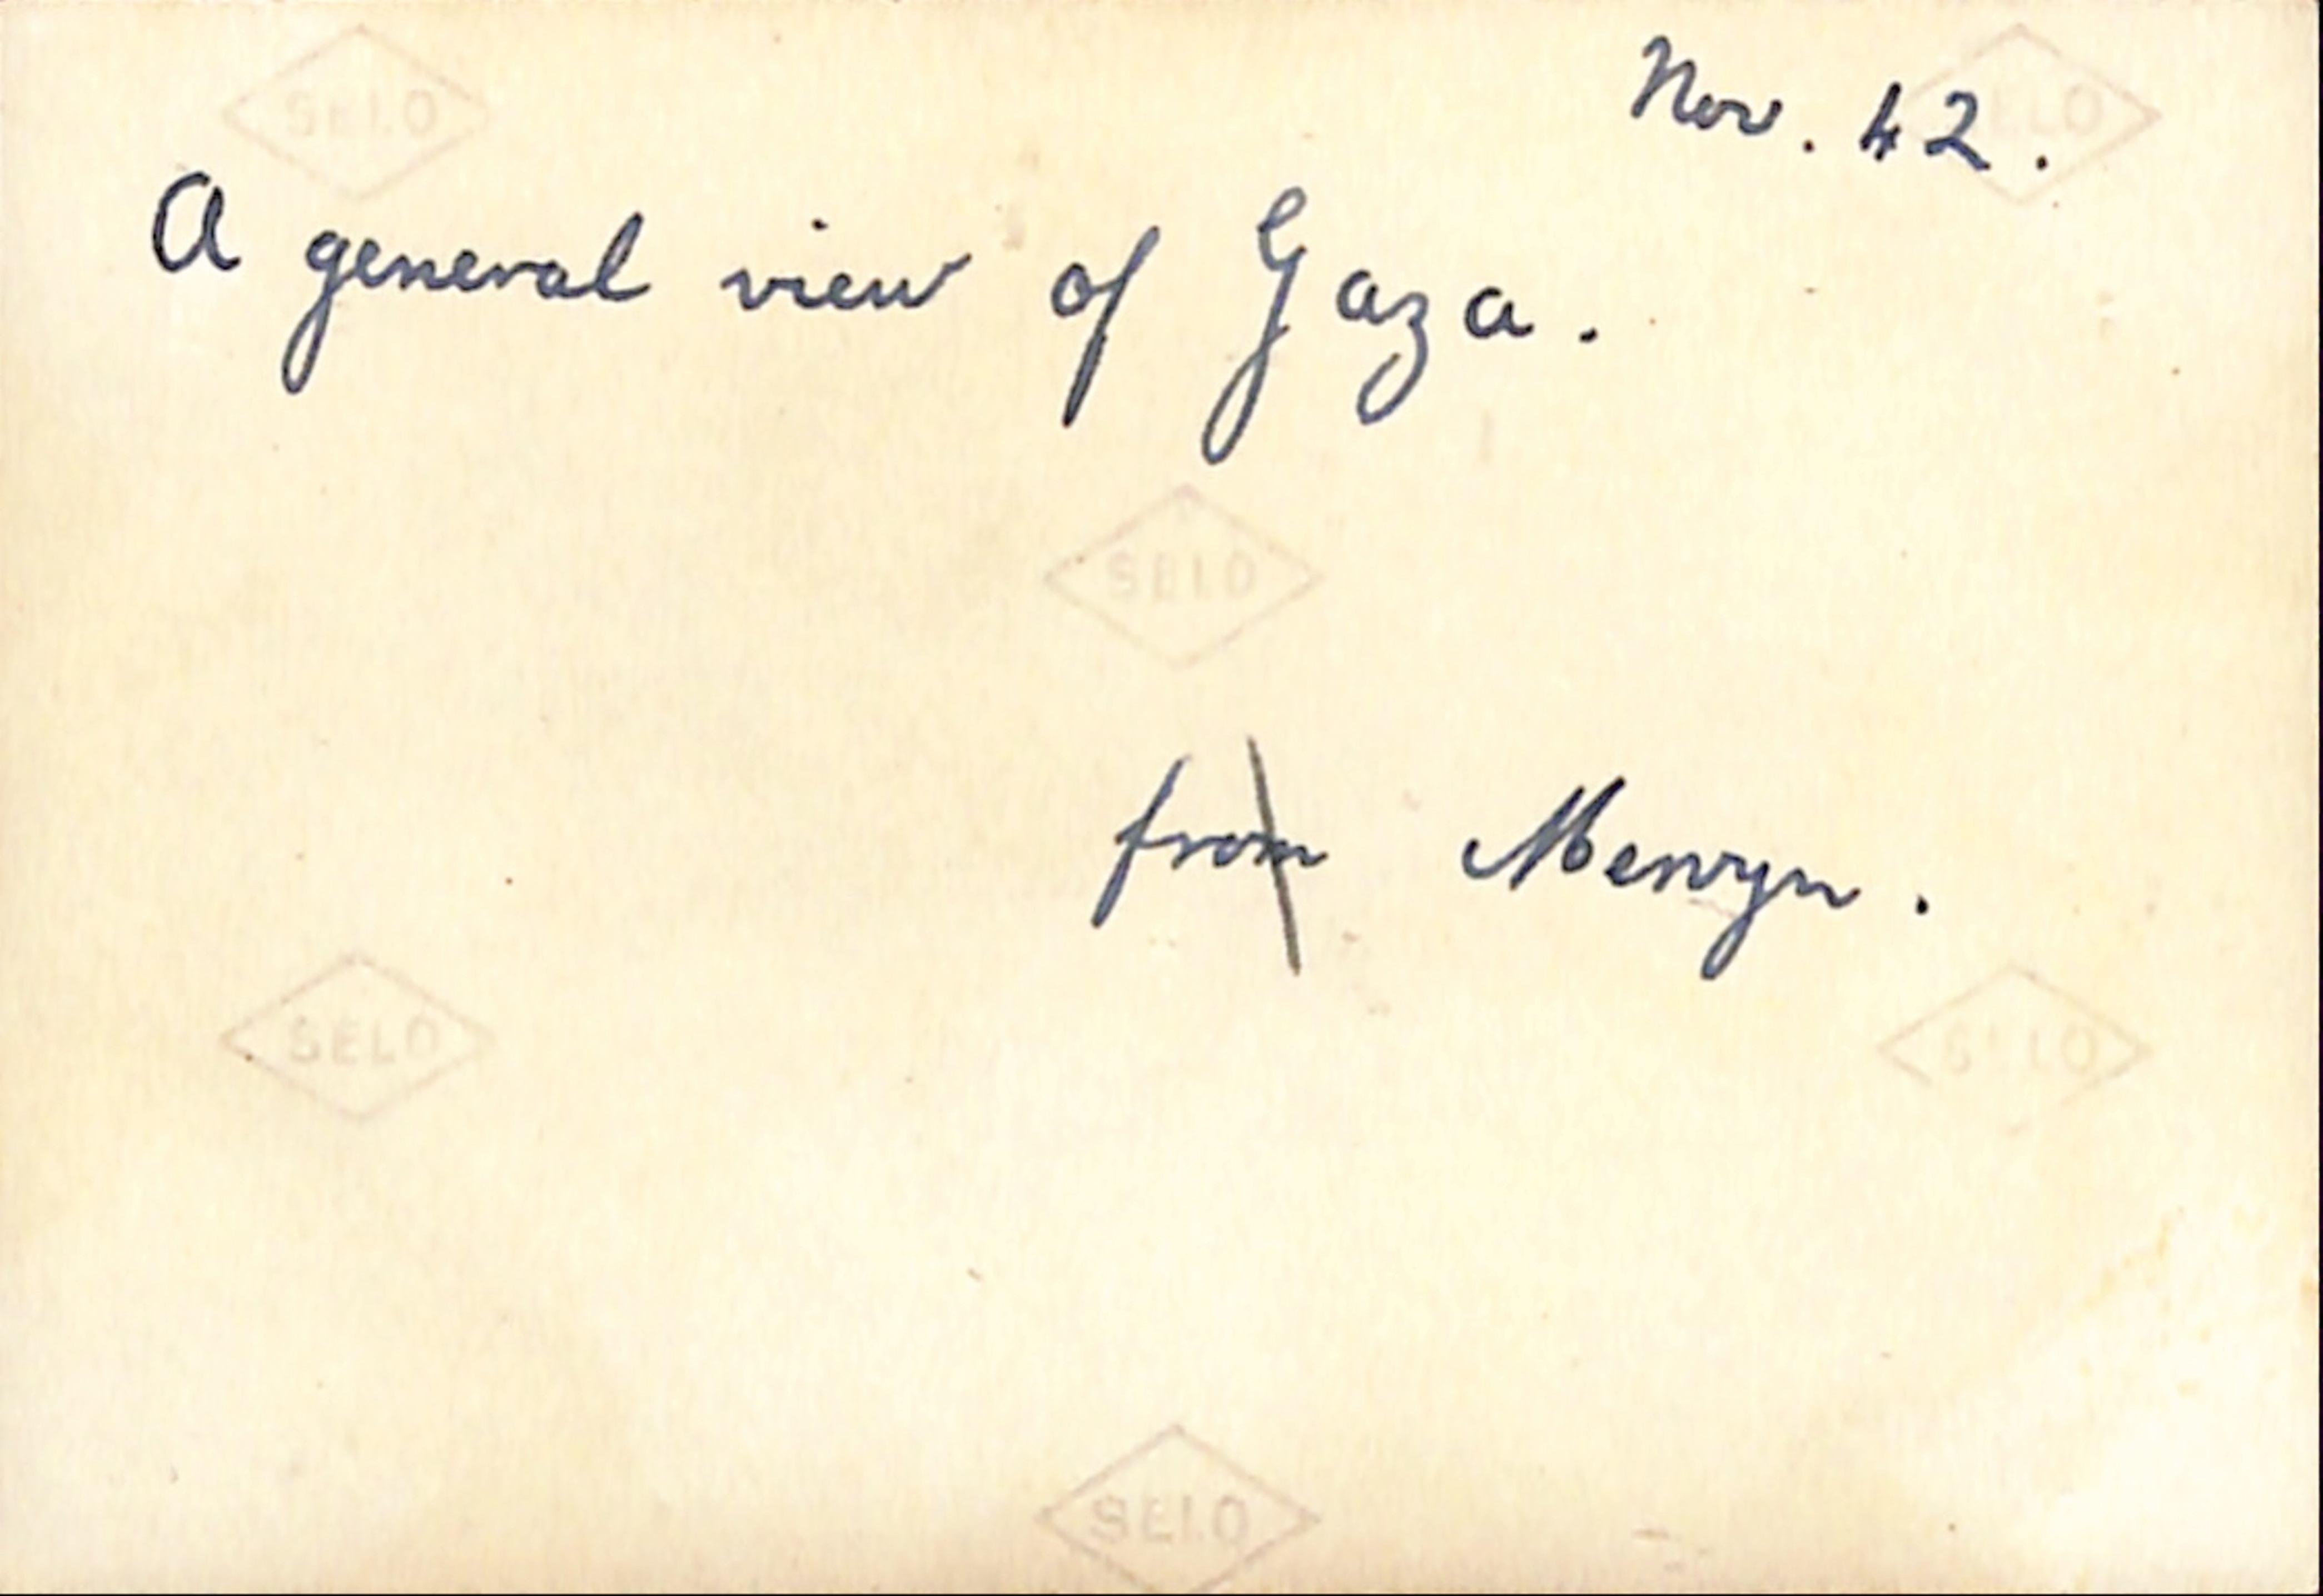 SELO
Nov. 42.
SELO
A general view of Gaza.
SELO
from Mervyn.
SELO
SELO
SELO